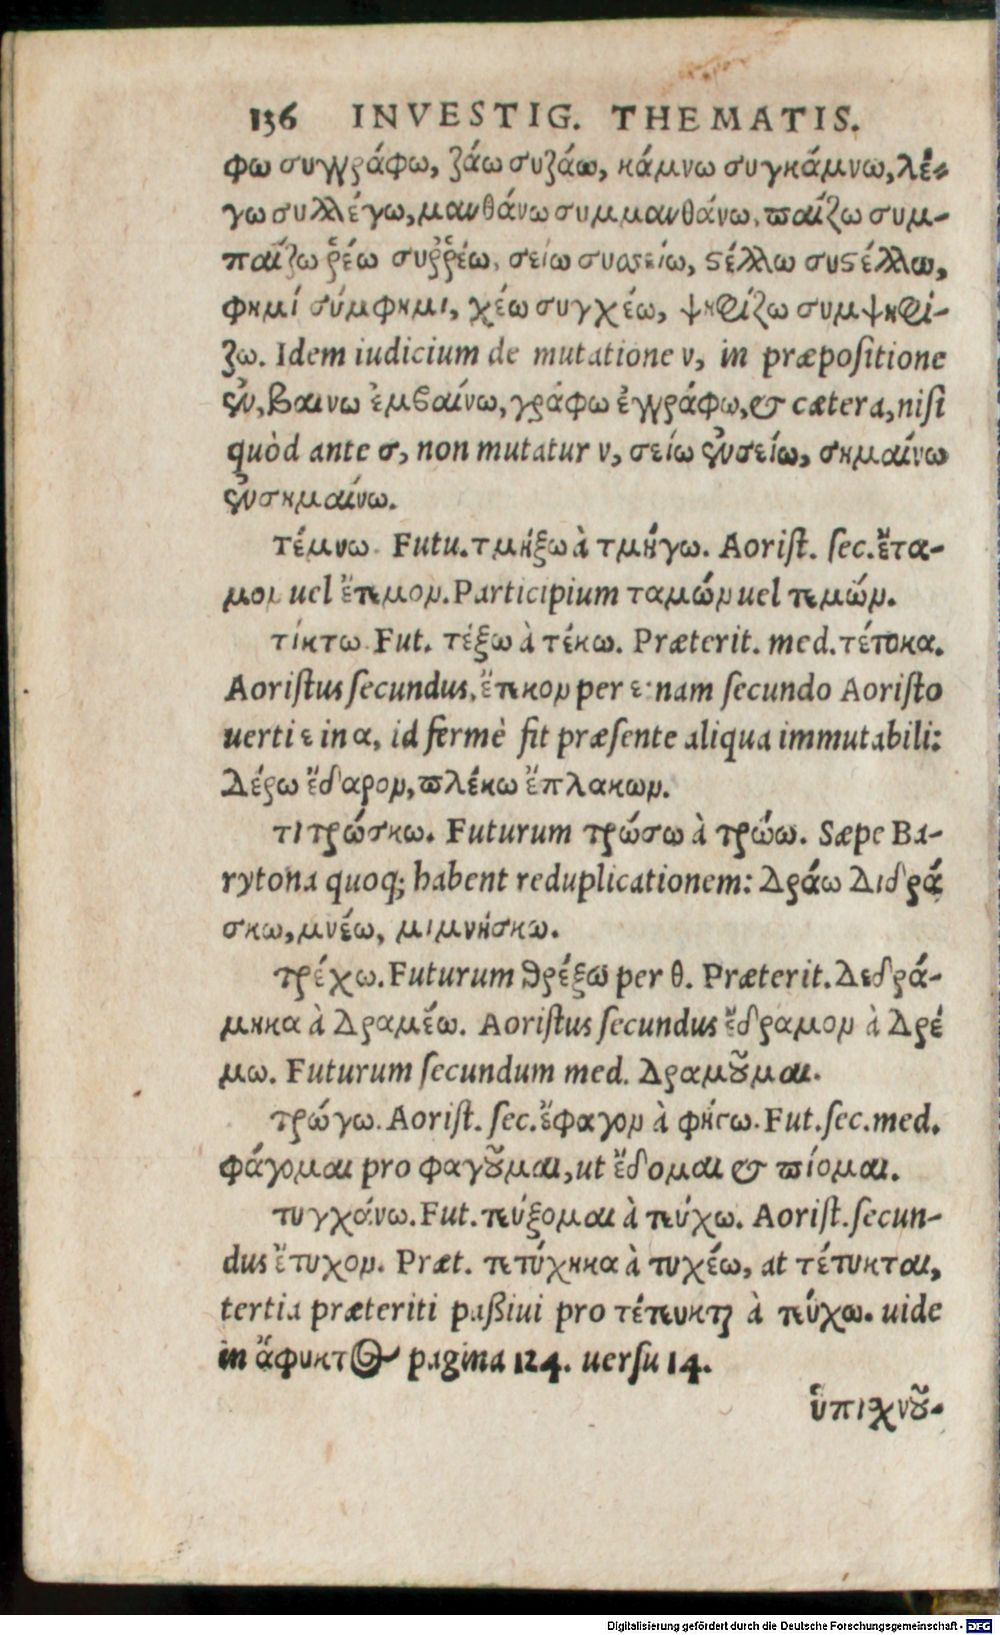 136 INVESTIG. THEMATIS.
φω συγγράφω, ζάω συζάω, κάμνω συγκάμνω, λέ-
γω συλλέγω, μανθάνω συμμανθάνω, παίζω συμ-
παίζω ῥέω συῤῥέω, σείω συσσείω, στέλλω συστέλλω,
φημί σύμφημι, χέω συγχέω, ψηφίζω συμψηφί-
ζω. Idem iudicium de mutatione ν, in præpositione
ἐν, βαινω ἐμβαίνω, γράφω ἐγγράφω, & cætera, nisi
quòd ante σ, non mutatur ν, σείω ἐνσείω, σημαίνω
ἐνσημαίνω.
τέμνω. Futu. τμήξω à τμήγω. Aorist. sec. ἔτα-
μον uel ἔτεμον. Participium ταμών uel τεμών.
τίκτω. Fut. τέξω à τέκω. Præterit. med. τέτοκα.
Aoristus secundus, ἔτεκον per ε: nam secundo Aoristo
uerti ε in α, id fermè fit præsente aliqua immutabili:
δέρω ἔδαρον, πλέκω ἔπλακων.
τιτρώσκω. Futurum τρώσω à τρώω. Sæpe Ba-
rytona quoq; habent reduplicationem: δράω διδρά
σκω, μνέω, μιμνήσκω.
τρέχω. Futurum θρέξω per θ. Præterit. δεδρά-
μηκα à δραμέω. Aoristus secundus ἔδραμον à δρέ
μω. Futurum secundum med. δραμοῦμαι.
τρώγω. Aorist. sec. ἔφαγον à φήγω. Fut. sec. med.
φάγομαι pro φαγοῦμαι, ut ἔδομαι & πίομαι.
τυγχάνω. Fut. τεύξομαι à τεύχω. Aorist. secun-
dus ἔτυχον. Præt. τετύχηκα à τυχέω, at τέτυκται,
tertia præteriti paßiui pro τέτευκται à τεύχω. uide
in ἄφυκτος pagina 124. uersu 14.
ὑπιχνοῦ-
Digitalisierung gefördert durch die Deutsche Forschungsgemeinschaft - DFG